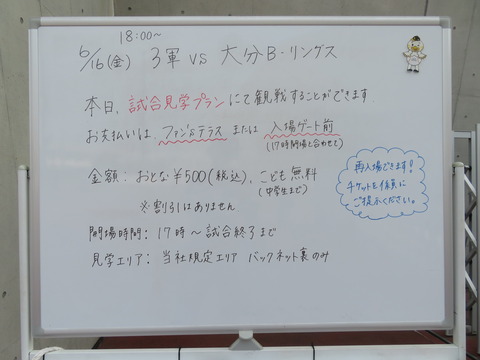 18:00~
6/16(金) 3軍 vs 大分B-リングス
本日、試合見学プランにて観戦することができます
お支払いは、ファンズテラス または 入場ゲート前
(17時開場と合わせて)
金額: おとな¥500(税込)、こども無料
(中学生まで)
※割引はありません
開場時間: 17時~試合終了まで
見学エリア: 当社規定エリア バックネット裏のみ
再入場できます!
チケットを係員に
ご提示ください。